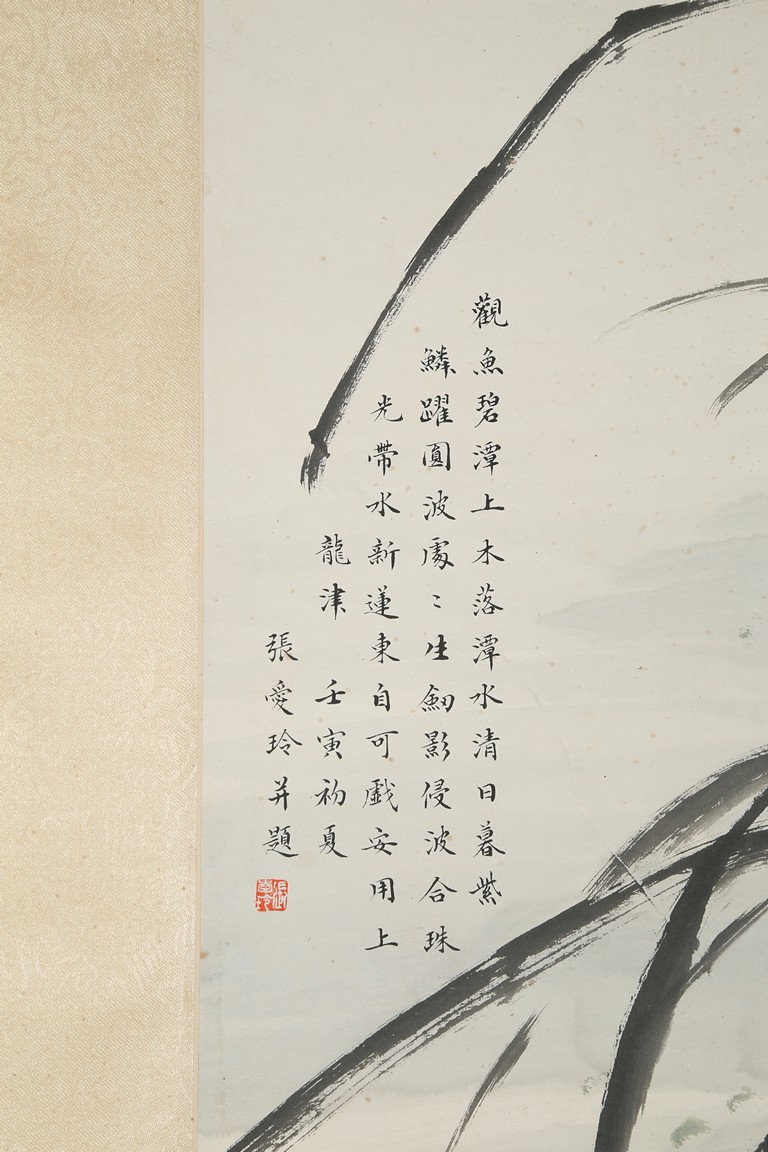 觀魚碧潭上木落潭水清日暮紫
鱗躍圓波處〻生劒影侵波合珠
光帶水新蓮東自可戲安用上
龍津　壬寅初夏
張愛玲并題